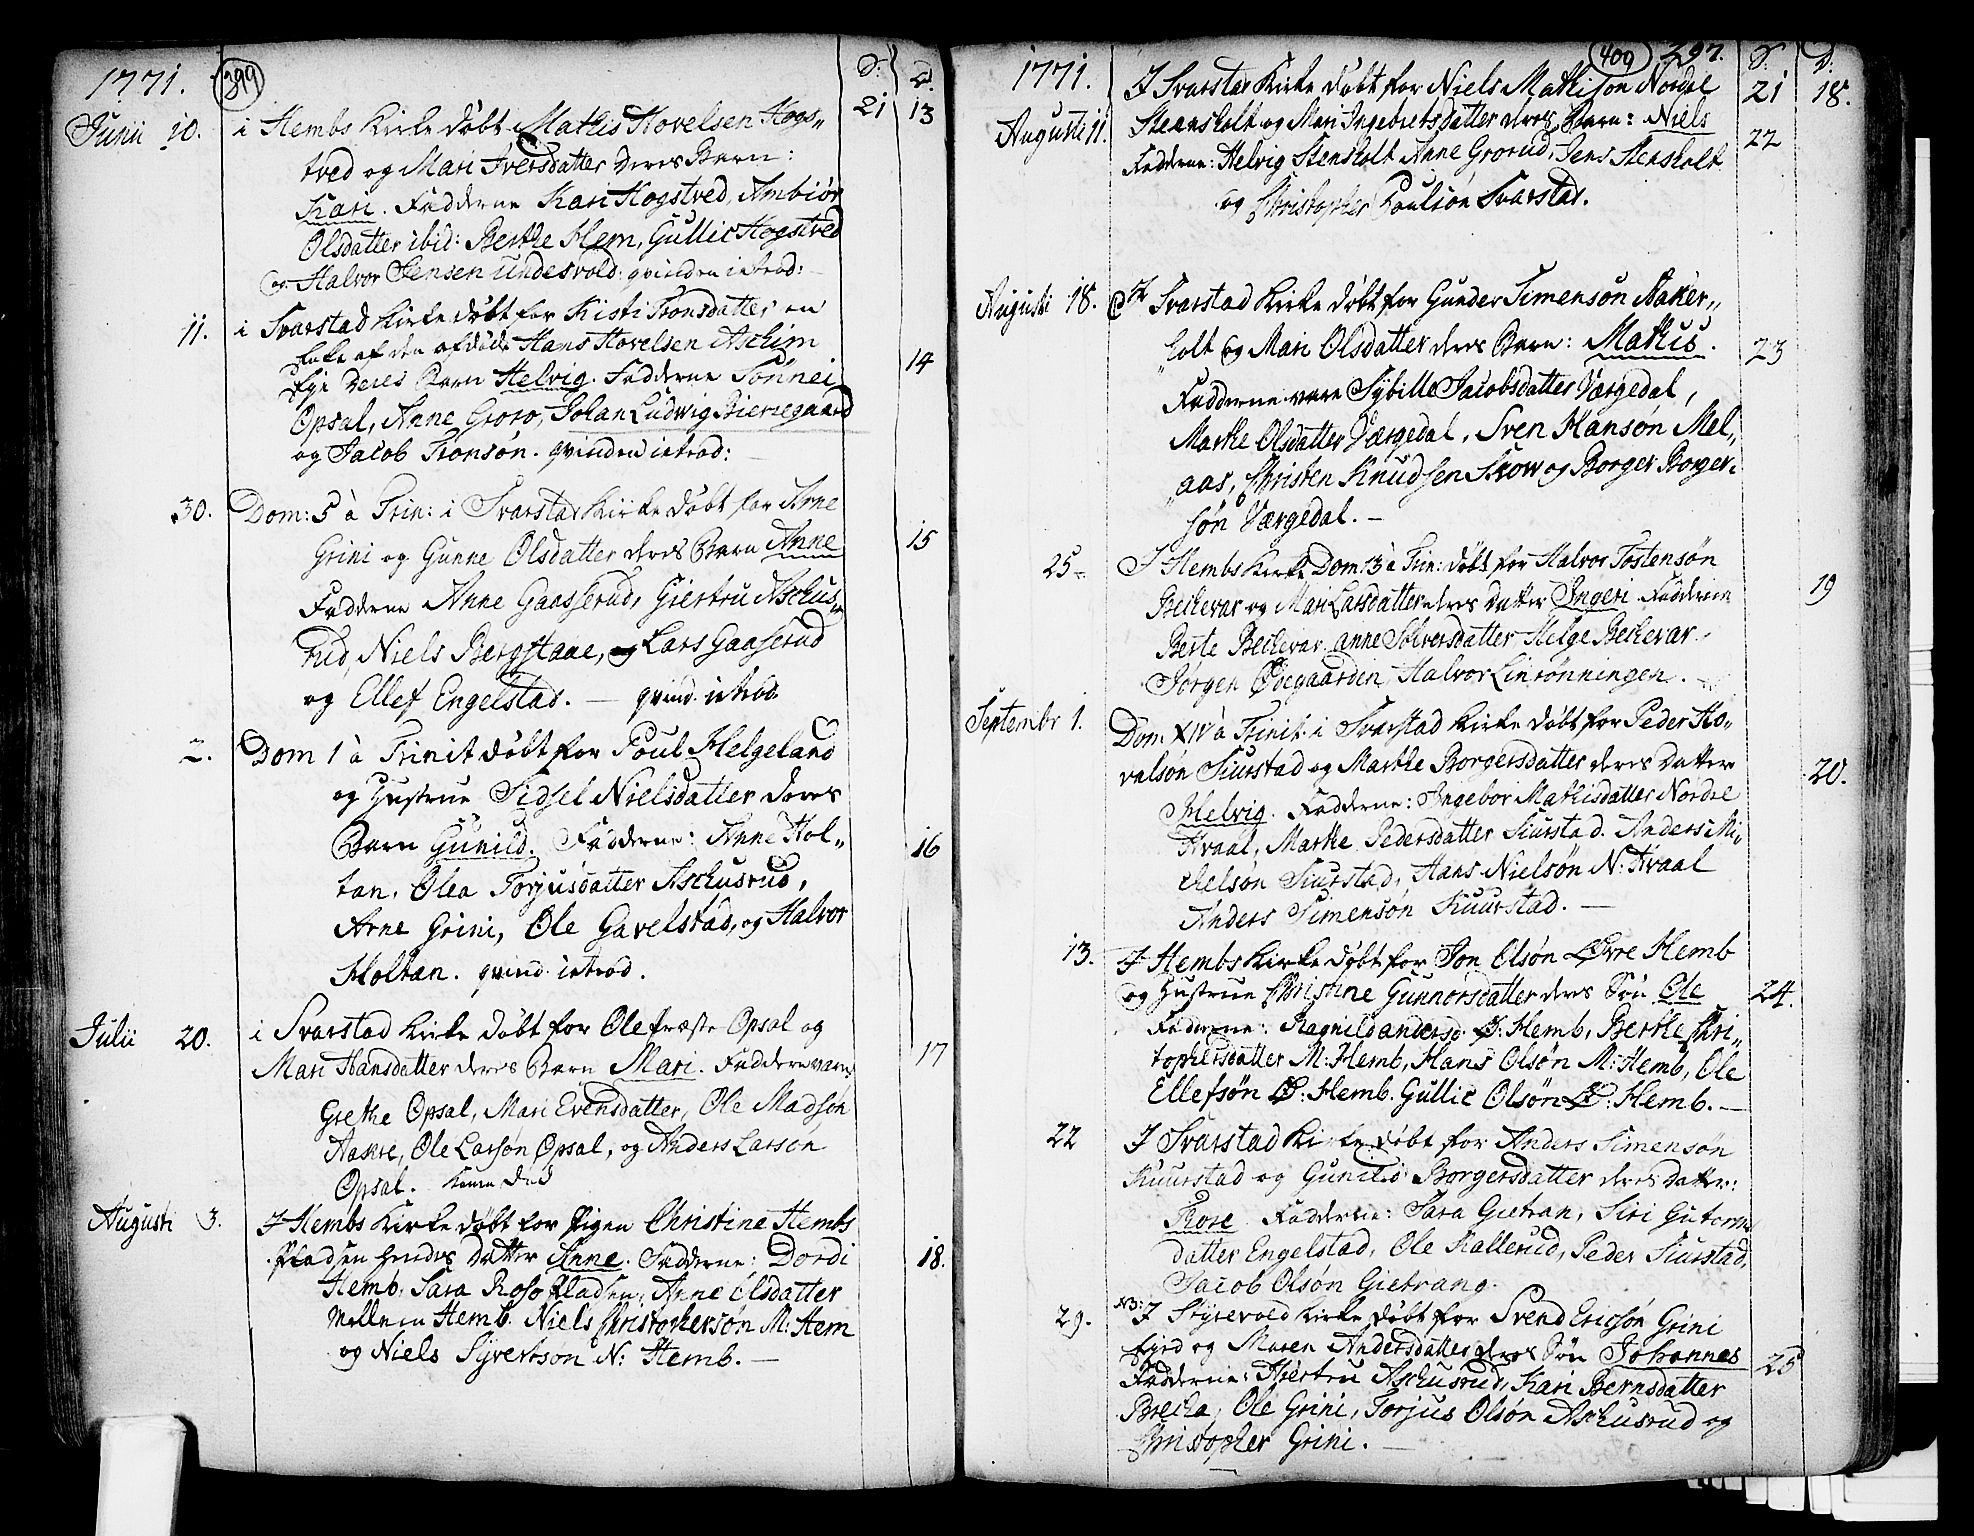 1771. 399 S: D.
Junii 10. i Hembs Kirke døbt Mathis Hovelsen Hogs„ 21 13
tved og Mari Iversdatter deres Barn:
Kari. Fadderne Kari Hogstved, Ambiør
Olsdatter ibid: Berthe Hem, Gullic Hogstved
og Halvor Jensen Undesvold. qvinden introd:
11. i Svarstad Kirke døbt for Kisti Tronsdatter en
Enke af den afdøde Hans Hovelsen Aschim
Eje deres Barn Helvig. Fadderne Sønnei 14
Opsal, Anne Groro, Johan Ludwig Bieregaard
og Jacob Tronsøn. qvinden introd:
30. Dom: 5 à Trin: i Svarstad Kirke døbt for Arne
Grini og Gunne Olsdatter deres Barn Anne 15
Fadderne Anne Gaasserud, Giertru Aschus„
rud, Niels Bergstaae, og Lars Gaaserud
og Ellef Engelstad. — qvind. introd.
2. Dom 1 à Trinit døbt for Poul Helgeland
og Hustrue Sidsel Nielsdatter deres
Barn Gunild. Fadderne: Anne Hol„ 16
tan, Olea Torjusdatter Aschusrud,
Arne Grini, Ole Gavelstad, og Halvor
Holtan. qvind. introd.
Julii 20. i Svarstad Kirke døbt for Ole træste Opsal og
Mari Hansdatter deres Barn Mari. Fadderne vare 17
Grethe Opsal, Mari Evensdatter, Ole Madsøn
Aasre, Ole Larsøn Opsal, og Anders Larson
Opsal. død
Augusti 3. I Hembs Kirke døbt for Pigen Christine Hembs
Pladsen hendes Datter Anne. Fadderne: Dordi 18.
Hemb, Sara Roso Pladsen, Anne Olsdatter
Mellem Hemb. Niels Christophersøn M: Hem
og Niels Syvertson N: Hemb. —
1771. 400 297. S. D.
I Svarstad Kirke døbt for Niels Mathison Nordre 21 18.
Augusti 11. Steensholt og Mari Ingebretsdatter deres Barn: Niels 22
Fadderne: Helvig Stensholt Anne Grorud, Jens Stensholt
og Christopher Poulsøn Svarstad.
Augusti 18. I Svarstad Kirke døbt for Gunder Simensøn Aaker„
„holt og Mari Olsdatter deres Barn: Mathis. 23
Fadderne vare Sybille Jacobsdatter Værgedal,
Marthe Olsdatter Værgedal, Sven Hansøn Mel„
„aas, Christen Knudsen Skow og Borger Borger„
søn Værgedal. —
25 I Hembs Kirke Dom: 13 à Trin: døbt for Halvor Tostensøn
Beckevar og Mari Larsdatter deres datter Ingeri Fadderne 19
Berte Beckevar, Anne Solversdatter, Helge Beckevar,
Jørgen Ødegaarden, Halvor Linrønningen. —
Septembr 1. Dom XIV à Trinit. i Svarstad Kirke døbt for Peder Ho„
valsøn Siurstad og Marthe Borgersdatter deres datter 20.
Helvig. Fadderne: Ingebor Mathisdatter Nordre
Hvaal, Marthe Pedersdatter Siurstad. Anders Mi„
chelsøn Siurstad, Hans Nielsøn N: Hvaal
Anders Simensøn Kuurstad. —
13. I Hembs Kirke døbt for Jon Olsøn Øvre Hemb
og Hustrue Christine Gunnorsdatter deres Søn Ole 24.
Fadderne: Ragnild Andersd. Ø: Hemb, Berthe Chri„
tophersdatter M: Hemb, Hans Olsøn M: Hemb, Ole
Ellefsøn Ø: Hemb. Gullic Olsøn Ø: Hemb. —
22 I Svarstad Kirke døbt for Anders Simensøn
Kuurstad og Gunild Borgersdatter deres datter:
Rose. Fadderne: Sara Gietran, Siri Gutorms
datter Engelstad, Ole Kallerud, Peder Siurstad,
Jacob Olsøn Gietrang.
29. NB: I Styrevold Kirke døbt for Svend Ericsøn Grini
Eyed og Maren Andersdatter deres Søn Johannes 25
Fadderne: Hiertru Aschusrud, Kari Bernsdatter
Brecka, Ole Grini, Torjus Olsøn Aschusrud og
Christopher Grini. —